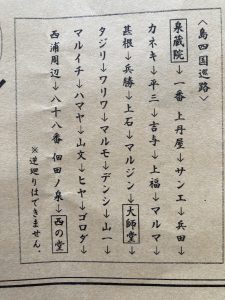 〈島四国巡路〉
泉蔵院→一番 上丹屋→サンエ→兵田→
カネキ→平三→吉与→上福→マルマ→
甚根→兵勝→上石→マルジン→大師堂→
タジリ→ワリワ→マルモ→デンシ→山一→
マルイチ→ハマヤ→山文→ヒヤ→ゴロダ→
西浦周辺→八十八番 佃田ノ泉→西の堂
※逆廻りはできません。